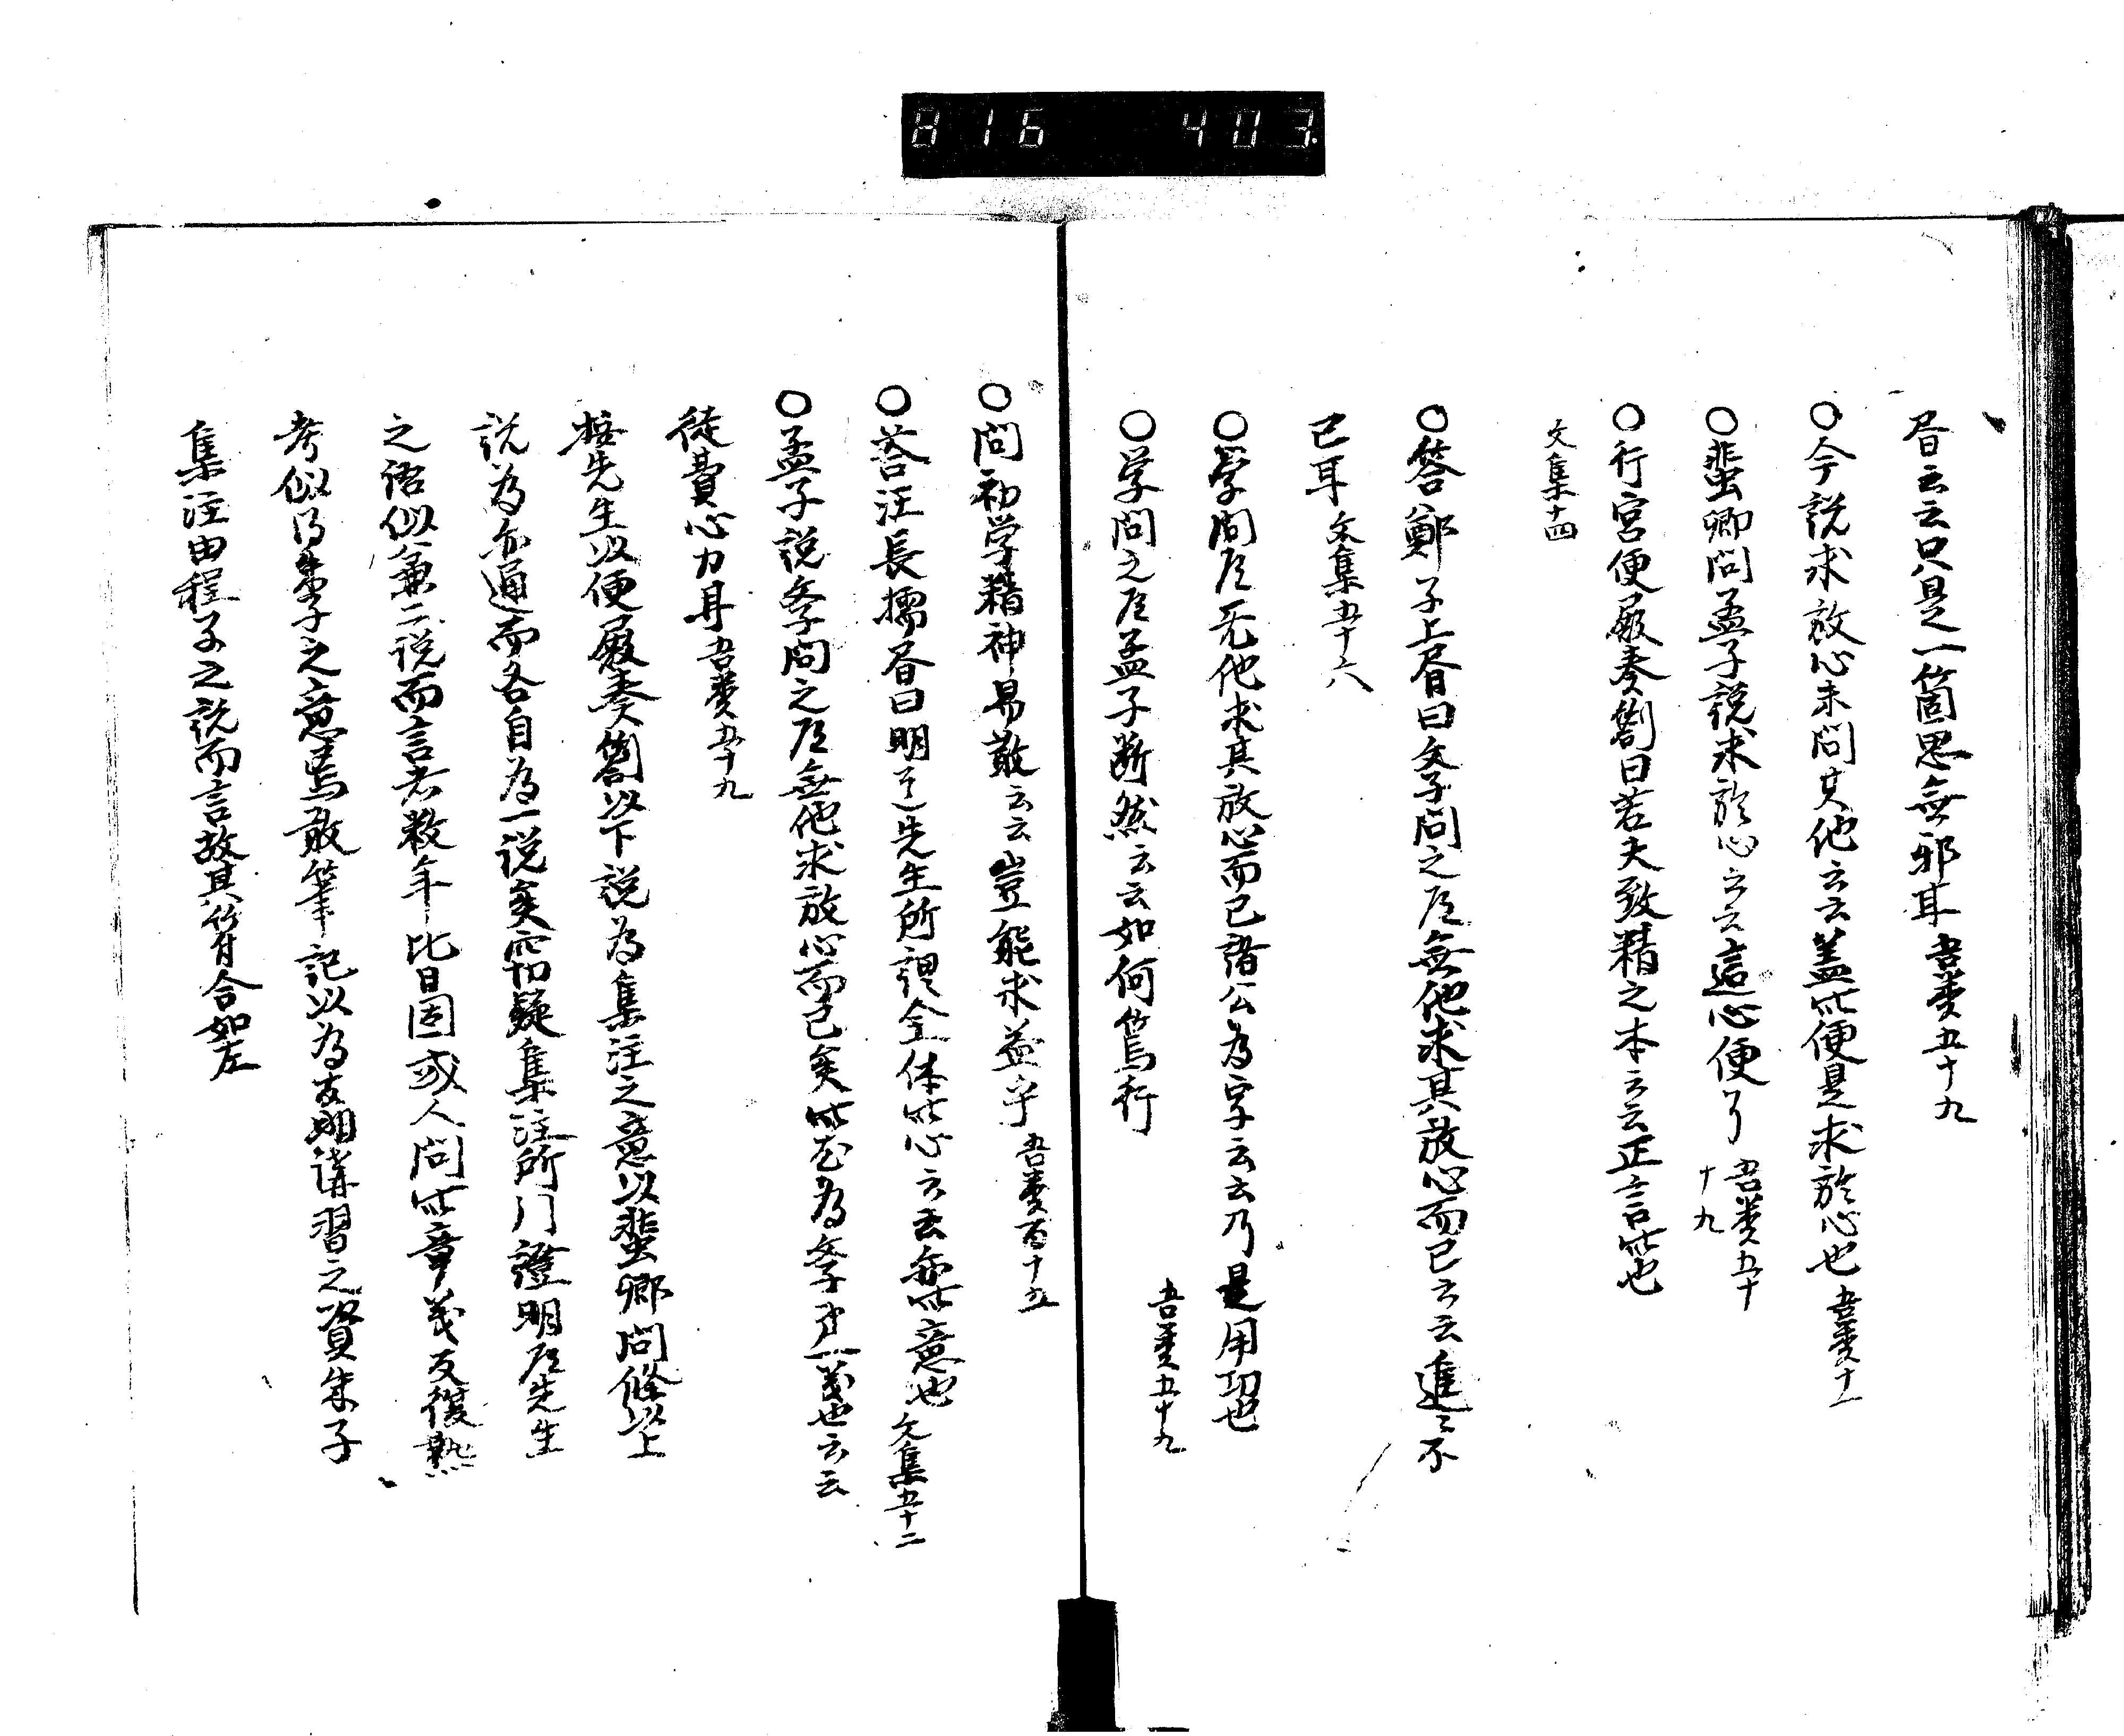 816 403
昏云云只是一箇思無邪耳 吾類五十九
○今説求放心未問其他云云蓋此便是求放心也 吾類十一
○蜚卿問孟子説求放心云云這心便了 吾類五十九
○行宮便殿奏劄曰若夫致精之本云云正言此也
文集十四
○答鄭子上昏曰学問之道無他求其放心而已云云進〻不
已耳 文集五十六
○学問道无他求其放心而已諸公為字云云乃是用功也
○学問之道孟子断然云云如何篤行 吾類五十九
○問初学精神易散云云豈能求益乎 吾類百十五
○答汪長孺昏曰明道先生所謂全体此心云云無此意也 文集五十二
○孟子説学問之道無他求放心而已矣此為学第一義也云云
徒費心力耳 吾類五十九
按先生以便殿奏劄以下説為集注之意以蜚卿問條以上
説為亦通而各自為一説矣竊疑集注所門證明道先生
之語似兼二説而言者数年比日因或人問此章義反復熟
考似得朱子之意焉敢筆記以為友朋講習之資朱子
集注由程子之説而言故其符合如左